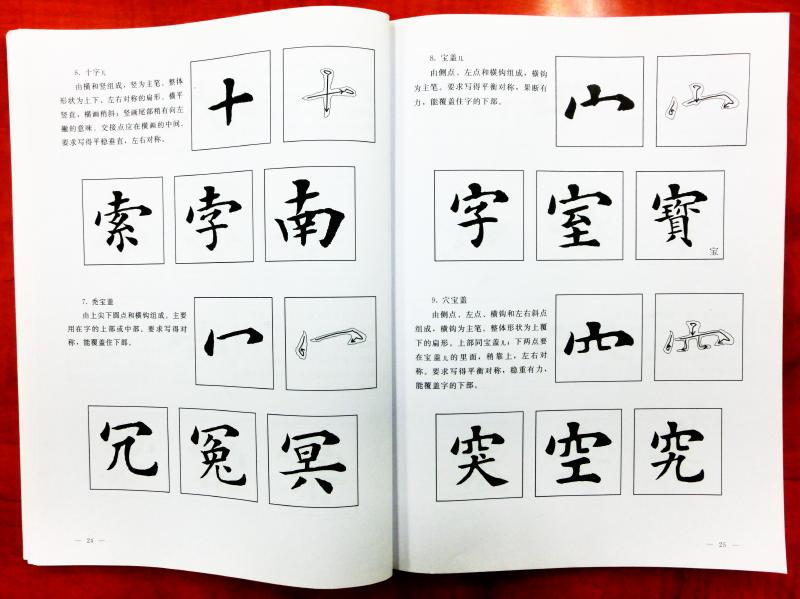 6. 十字儿
由横和竖组成，竖为主笔。整体
形状为上下、左右对称的扁形。横平
竖直，横画稍斜；竖画尾部稍有向左
撇的意味。交接点应在横画的中间。
要求写得平稳垂直，左右对称。
十
索 孛 南
7. 秃宝盖
由上尖下圆点和横钩组成。主要
用在字的上部或中部。要求写得对
称，能覆盖住下部。
冖
冗 冤 冥
— 24 —
8. 宝盖儿
由侧点、左点和横钩组成，横钩
为主笔。要求写得平衡对称，果断有
力，能覆盖住字的下部。
宀
字 室 寶
宝
9. 穴宝盖
由侧点、左点、横钩和左右斜点
组成，横钩为主笔。整体形状为上覆
下的扁形。上部同宝盖儿；下两点要
在宝盖儿的里面，稍靠上，左右对
称。要求写得平衡对称，稳重有力，
能覆盖字的下部。
突 空 究
— 25 —